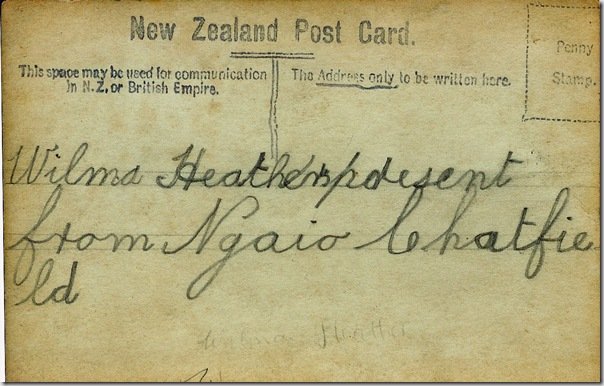 New Zealand Post Card.
Penny
Stamp.
This space may be used for communication
in N.Z. or British Empire.
The Address only to be written here.
Wilma Heather present
from Ngaio Chatfie
ld
Wilma Heather